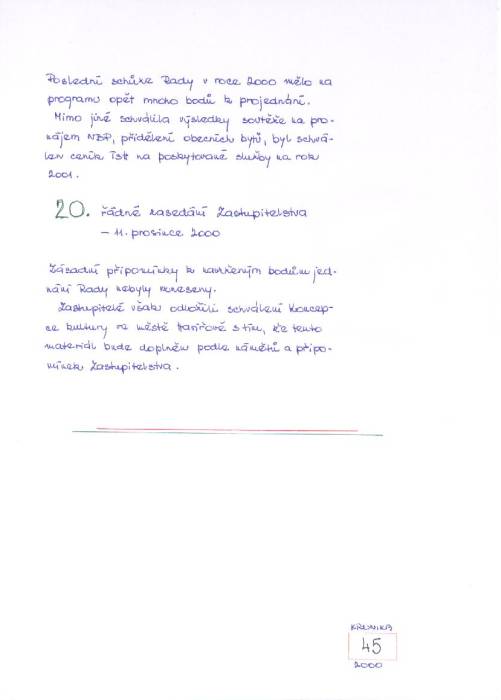 Poslední schůze Rady v roce 2000 mělo na
programu opět mnoho bodů k projednání.
Mimo jiné schválila výsledky soutěže na pro-
nájem NBP, přidělení obecních bytů, byl schvá-
len ceník TSK na poskytované služby na rok
2001.
20. řádné zasedání Zastupitelstva
– 11. prosince 2000
Zásadní připomínky k navrženým bodům jed-
nání Rady nebyly vzneseny.
Zastupitelé však odložili schválení Koncep-
ce kultury ve městě s tím, že tento
materiál bude doplněn podle námětů a připo-
mínek Zastupitelstva.
KRONIKA
45
2000